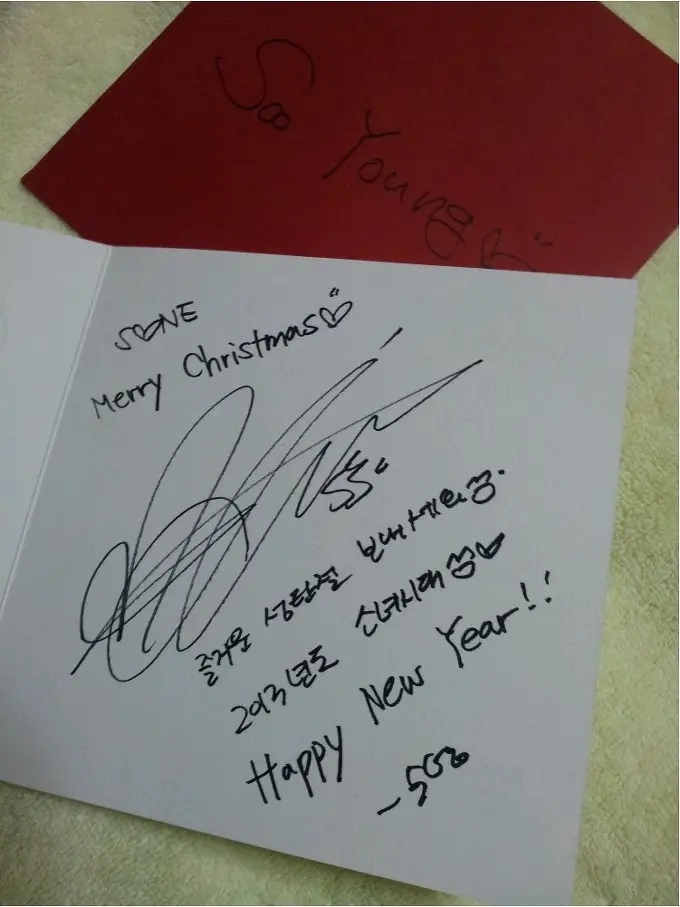 Soo Young
S♡NE
Merry Christmas♡
즐거운 성탄절 보내세요
2013년도 소녀시대
Happy New Year!!